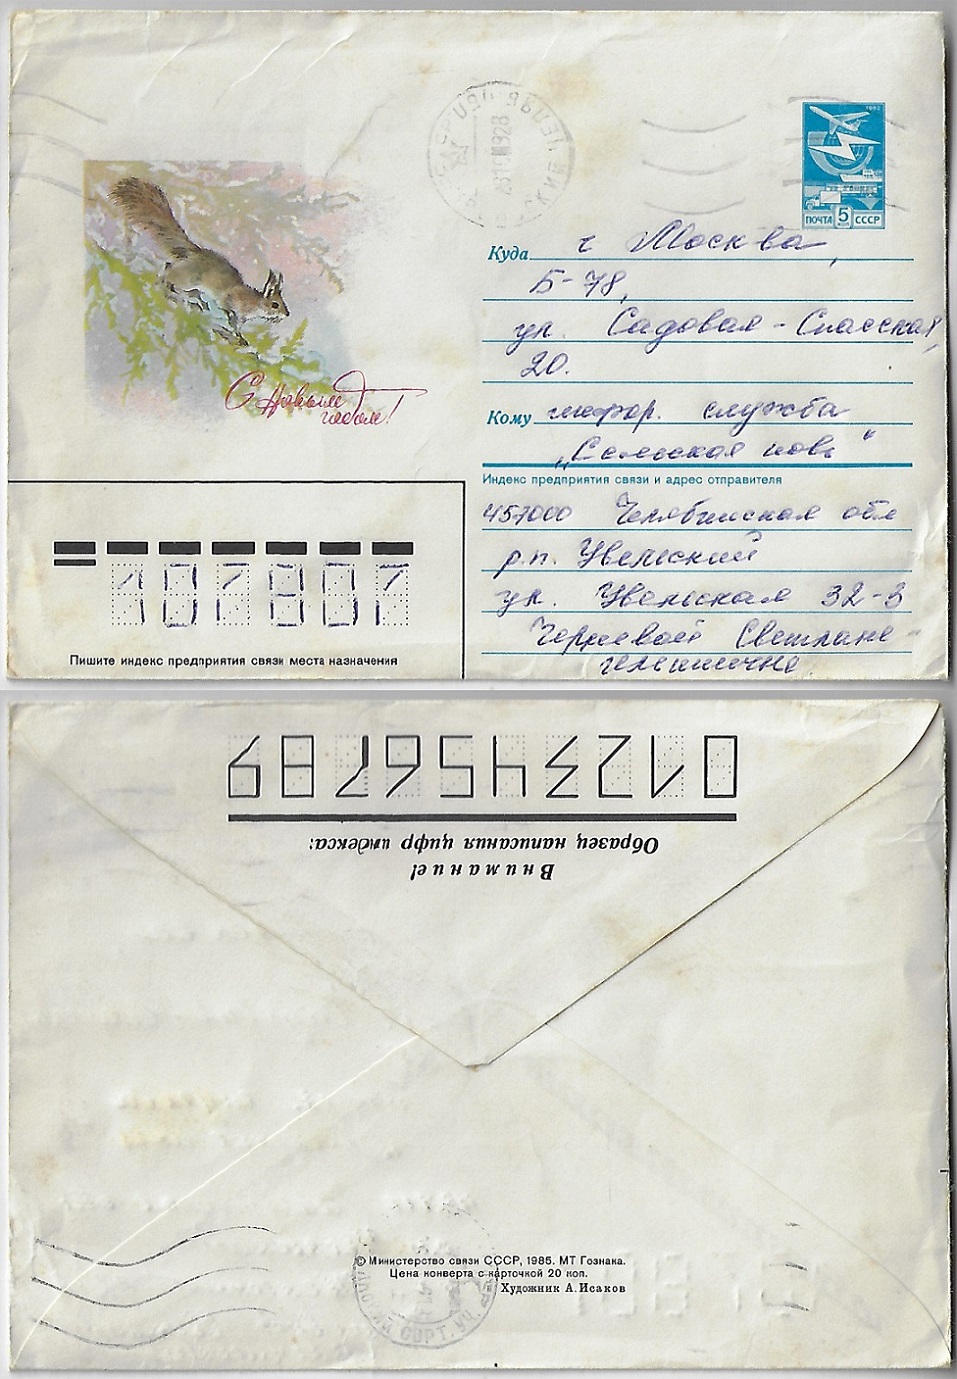 1982
ПОЧТА 5 СССР
С Новым
годом!
Куда г Москва,
Б-78,
ул. Садовая-Спасская,
20.
Кому информ. служба
"Сельская новь"
Индекс предприятия связи и адрес отправителя
457000 Челябинская обл
р.п. Увельский
ул. Увельская 32-3
Светлане
107807
Пишите индекс предприятия связи места назначения
Внимание!
Образец написания цифр индекса:
0123456789
© Министерство связи СССР, 1985. МТ Гознака.
Цена конверта с карточкой 20 коп.
Художник А.Исаков
СОРТ. УЧ.